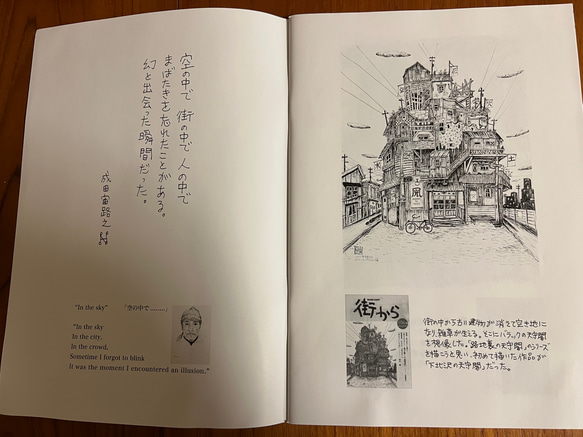 空の中で 街の中で 人の中で
まばたきを忘れたことがある。
幻と出会った瞬間だった。
成田宙路之
"In the sky" 「空の中で………」
"In the sky
In the city,
In the crowd,
Sometime I forgot to blink
It was the moment I encountered an illusion."
風
街から
街の中から古い建物が消えて空き地に
なり、雑草が生える。そこにバラックの天守閣
を想像した。"路地裏の天守閣"のシリーズ
を描こうと思い、初めて描いた作品が
「下北沢の天守閣」だった。